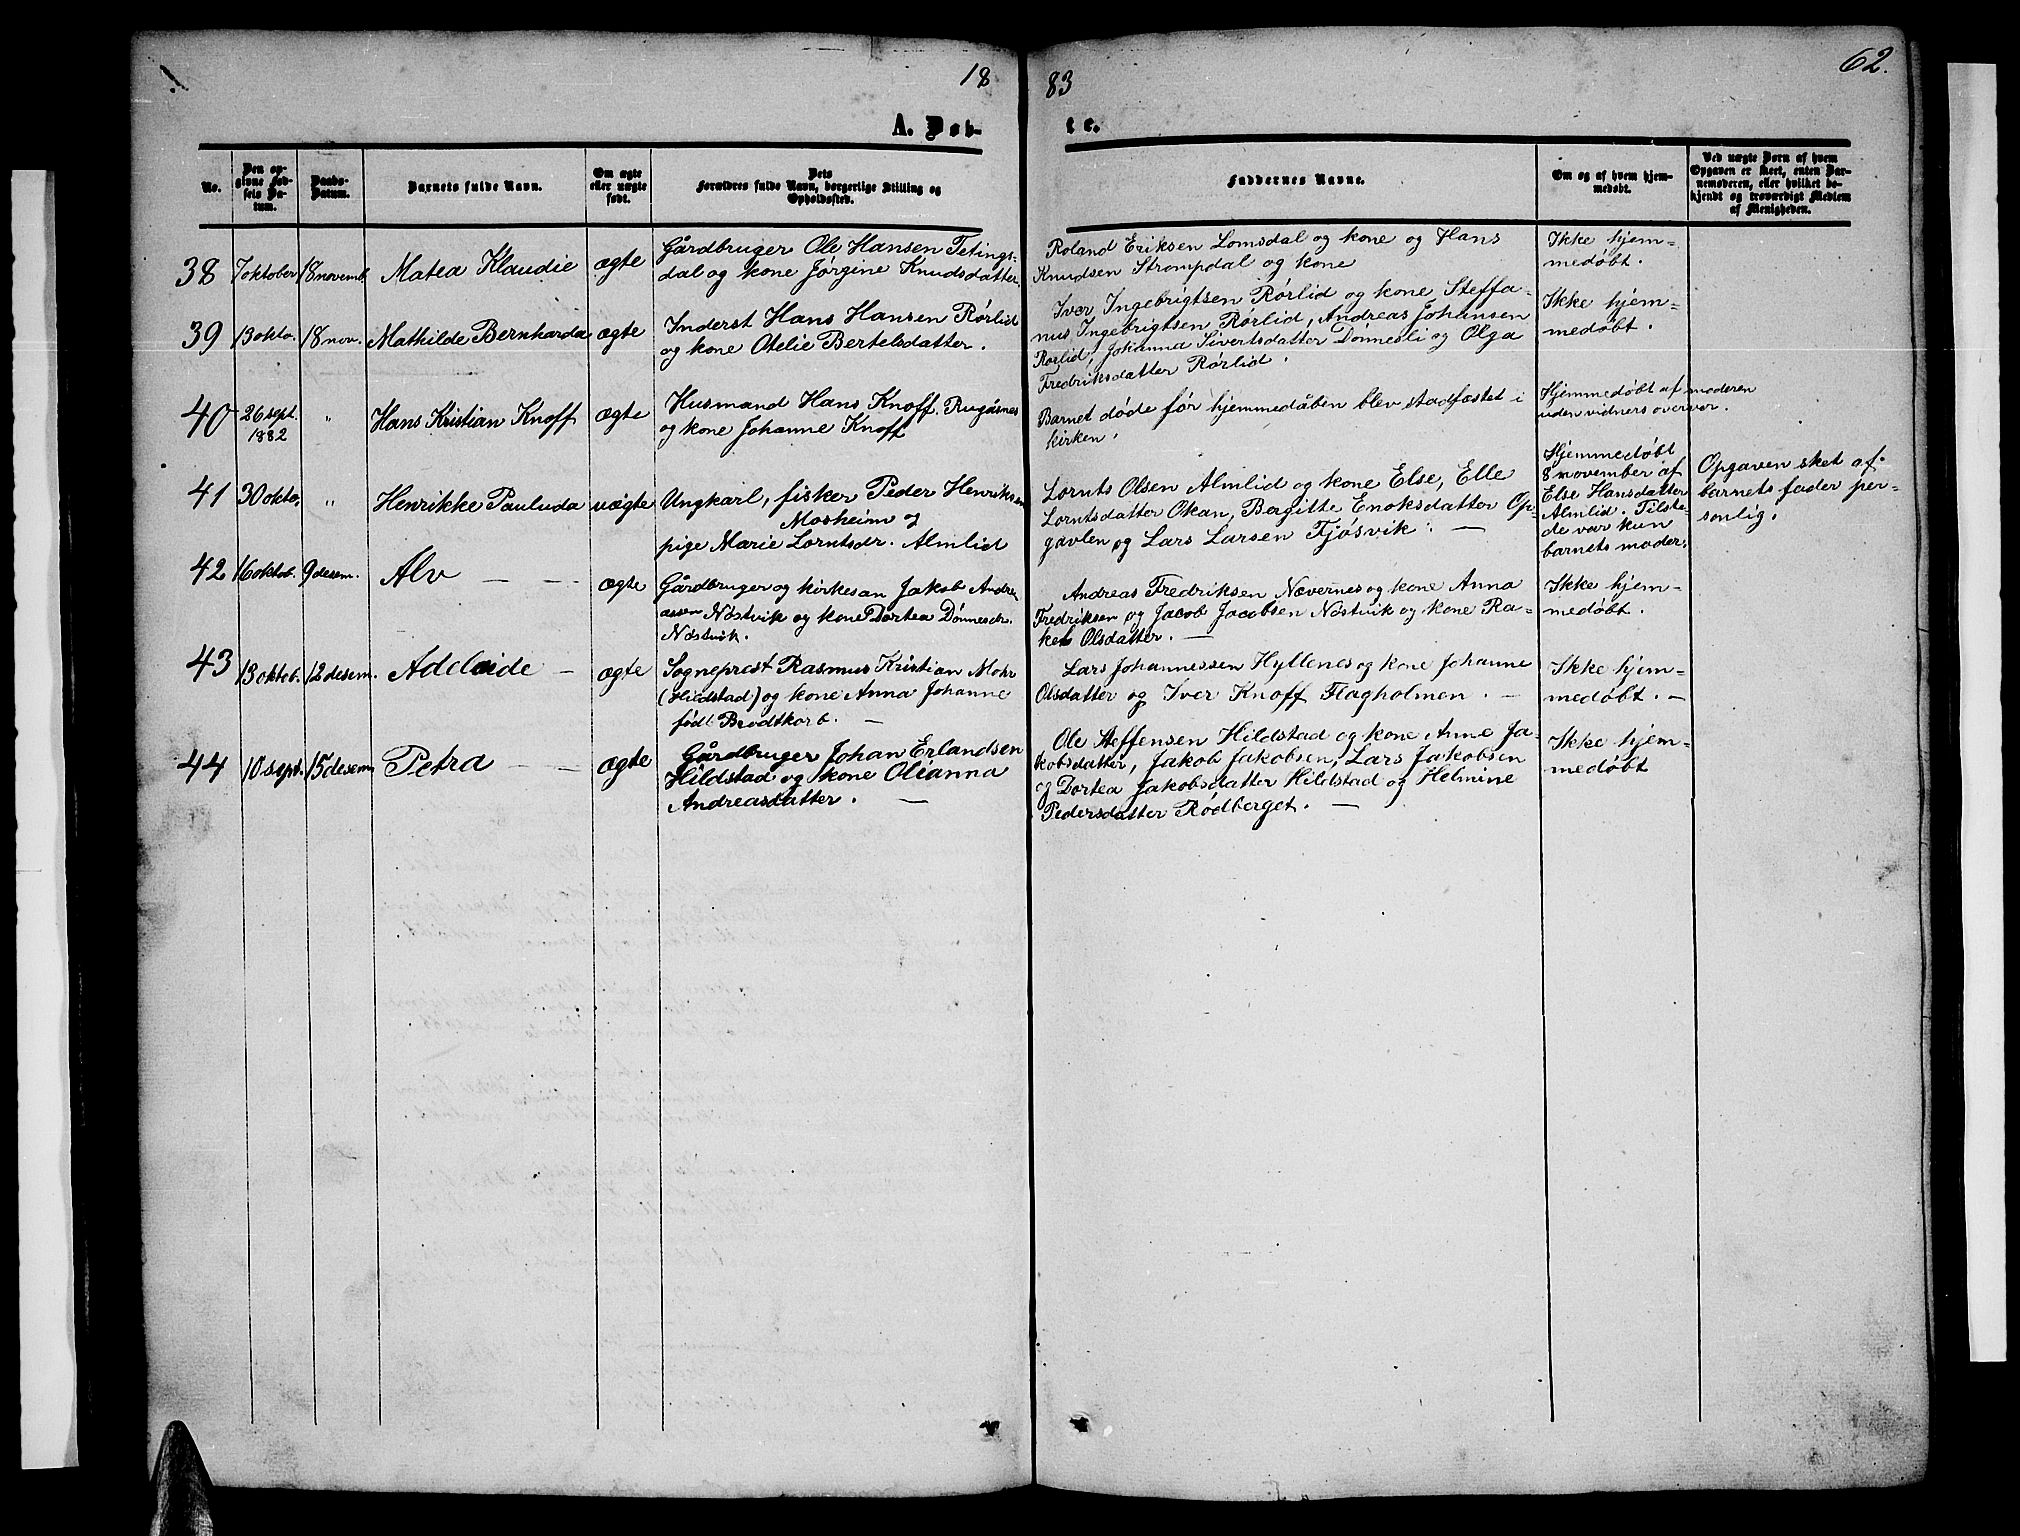 18
83
62.
A. Døb-
te.
No.
Den op-
givne Fød-
sels Da-
tum.
Daabs-
Datum.
Barnets fulde Navn.
Om ægte
eller uægte
født.
Dets
Forældres fulde Navn, borgerlige Stilling og
Opholdssted.
Faddernes Navne.
Om og af hvem hjem-
medøbt.
Ved uægte Børn af hvem
Opgaven er skeet, enten Bar-
nemoderen, eller hvilket be-
kjendt og troværdigt Medlem
af Menigheden.
38 7 oktober 18 novemb. Matea Klaudie ægte
Gårdbruger Ole Hansen Tetings-
dal og kone Jørgine Knudsdatter.
Roland Eriksen Lomsdal og kone og Hans
Knudsen Strompdal og kone
Ikke hjem-
medøbt.
39 13 okto. 18 nov. Mathilde Bernharda ægte
Inderst Hans Hansen Rørlid
og kone Otelie Bertelsdatter.
Iver Ingebrigtsen Rørlid og kone Steffa-
nus Ingebrigtsen Rørlid, Andreas Johansen
Rørlid, Johanna Sivertsdatter Dønnesli og Olga
Fredriksdatter Rørlid.
Ikke hjem-
medøbt.
40 26 sept. 1882 " Hans Kristian Knoff ægte
Husmand Hans Knoff, Rugåsnes
og kone Johanne Knoff
Barnet døde før hjemmedåben blev stadfæstet i
kirken.
Hjemmedøbt af moderen
uden vidners overvær.
41 30 okto, " Henrikke Pauluda uægte
Ungkarl, fisker Peder Henriksen
Mosheim og
pige Marie Lorntsdr. Almlid
Lornts Olsen Almlid og kone Else, Elle
Lorntsdatter Okan, Bergitte Enoksdatter Op-
gavlen og Lars Larsen Fjøsvik. —
Hjemmedøbt
8 november af
Else Hansdatter
Almlid. Tilste-
de var kun
barnets moder.
Opgaven sket af
barnets fader per-
sonlig.
42 16 oktob. 9 desem. Alv — — ægte
Gårdbruger og kirkesan Jakob Andre
assen Nøstvik og kone Dortea Dønnesdr.
Nøstvik.
Andreas Fredriksen Nævernes og kone Anna
Fredriksen og Jacob Jacobsen Nøstvik og kone Ra-
kel Olsdatter. —
Ikke hjem-
medøbt.
43 13 oktob. 12 desem. Adelaide — ægte
Sogneprest Rasmus Kristian Mohr
(Hildstad) og kone Anna Johanne
født Brodtkorb. —
Lars Johannessen Hyllenes og kone Johanne
Olsdatter og Iver Knoff Flagholmen. —
Ikke hjem-
medøbt. —
44 10 sept. 15 desem Petra — — ægte
Gårdbruger Johan Erlandsen
Hildstad og kone Olianna
Andreasdatter. —
Ole Steffensen Hildstad og kone Anne Ja-
kobsdatter, Jakob Jakobsen, Lars Jakobsen
og Dortea Jakobsdatter Hildstad og Helmine
Pedersdatter Rødberget. —
Ikke hjem-
medøbt